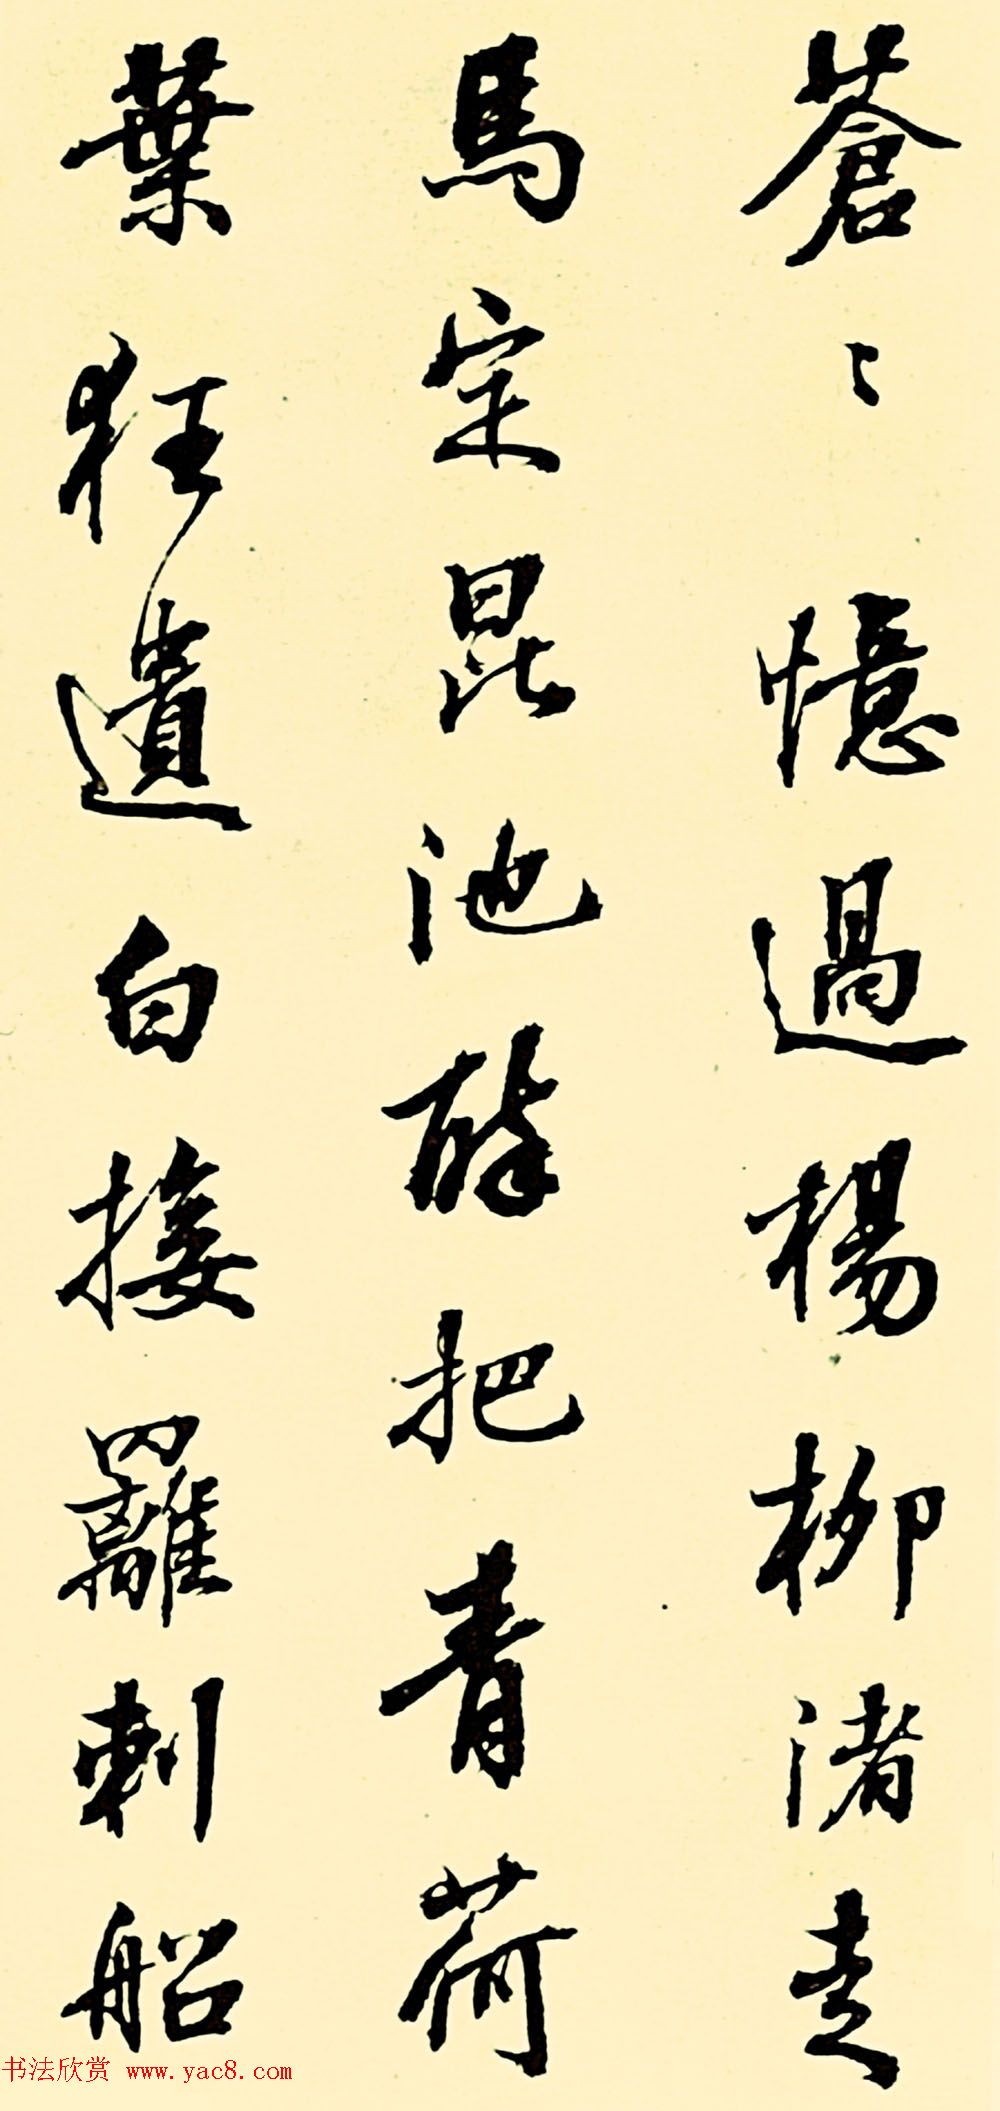 蒼〻憶過楊柳渚走
馬定昆池醉把青荷
葉狂遺白接䍦刺船
书法欣赏 www.yac8.com